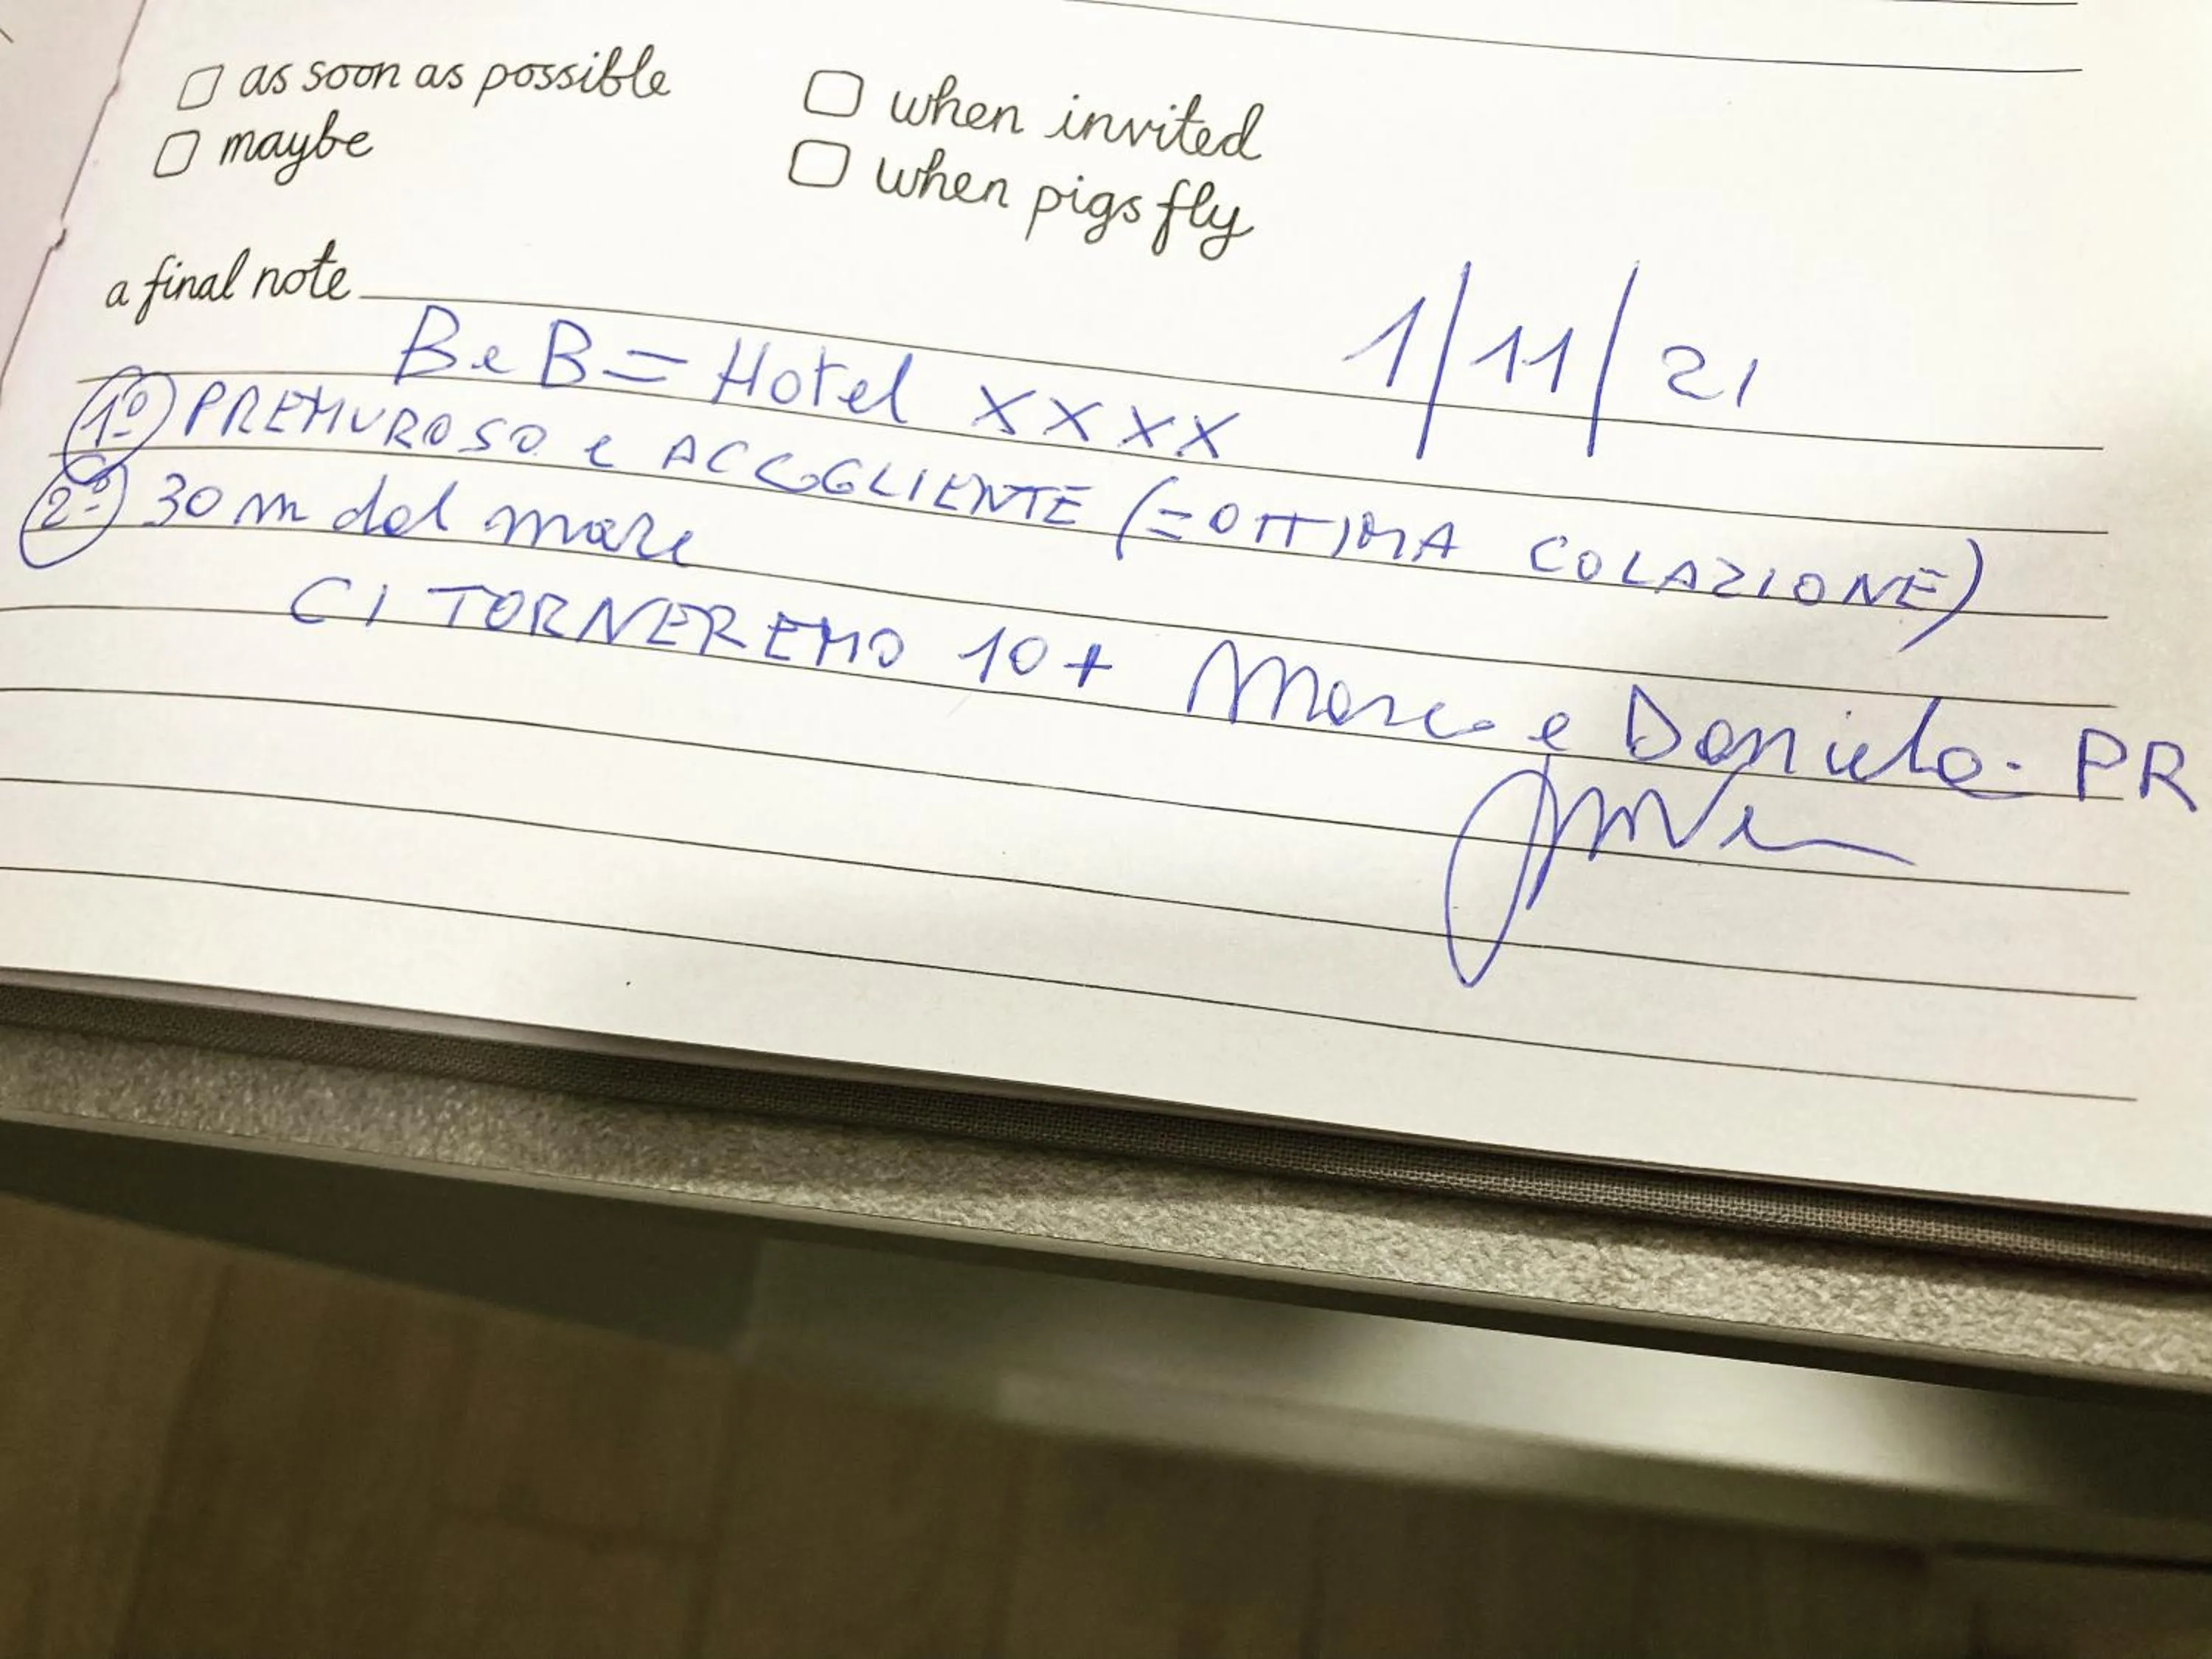 as soon as possible when invited
maybe when pigs fly
a final note
1/11/21
B e B = Hotel XXXX
1º PREMUROSO e ACCOGLIENTE (= OTTIMA COLAZIONE)
2º 30 m dal mare
CI TORNEREMO 10+ Marco e Daniela. PR